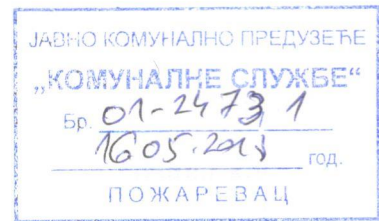 ЈАВНО КОМУНАЛНО ПРЕДУЗЕЋЕ
„КОМУНАЛНЕ СЛУЖБЕ“
Бр. 01-2473 1
16 05. год.
ПОЖАРЕВАЦ